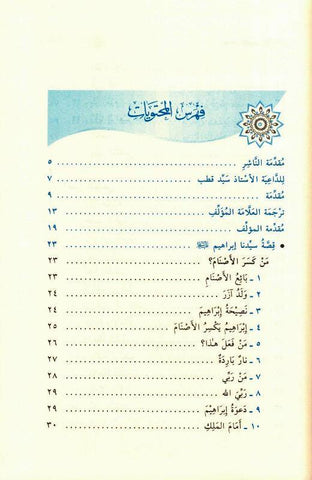 فهرس المحتويات
مُقدِّمَة النَّاشِرِ ........ ٥
لِلدَّاعِيَة الأُسْتَاذ سَيِّد قطب ........ ٧
مُقدِّمَة ........ ٩
تَرْجَمَة العَلَّامَة المُؤَلِّفِ ........ ١٣
مُقدِّمة المؤلف ........ ١٩
• قِصَّةُ سيِّدنا إبراهيم ﷺ ........ ٢٣
مَنْ كَسَرَ الأَصْنَامَ؟ ........ ٢٣
١ - بَائِعُ الأَصْنَامِ ........ ٢٣
٢ - وَلَدُ آزَرَ ........ ٢٤
٣ - نَصِيْحَةُ إِبْرَاهِيمَ ........ ٢٤
٤ - إِبْرَاهِيمُ يَكْسِرُ الأَصْنَامَ ........ ٢٥
٥ - مَنْ فَعَلَ هٰذا؟ ........ ٢٦
٦ - نارٌ بَارِدَةٌ ........ ٢٧
٧ - مَنْ رَبِّي ........ ٢٨
٨ - رَبِّيَ الله ........ ٢٩
٩ - دَعوَةُ إِبرَاهِيْمَ ........ ٢٩
١٠ - أَمَامَ المَلِكِ ........ ٣٠